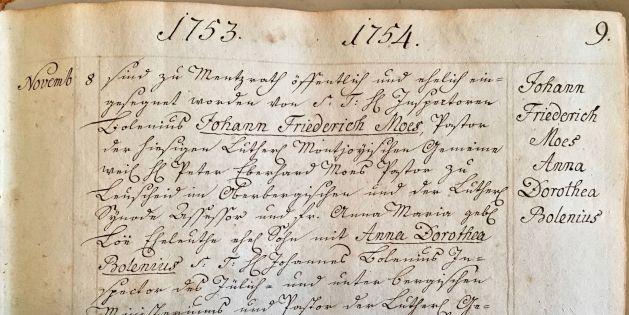 1753. 1754. 9.
Novemb 8 sind zu Mentzrath öffentlich und ehelich ein-
gesegnet worden von S. T. H Inspectoren
Bolenius Johann Friederich Moes, Pastor
der hiesigen Luther Montjoyischen Gemeine
weil H Peter Eberhard Moes Pastor zu
Leuscheid im Oberbergischen und der Luther
Synode Assessor und Fr. Anna Maria geb
Löe Eheleuthe ehel Sohn mit Anna Dorothea
Bolenius S. T. H Johannes Bolenius In-
spector des Jülich- und unter bergischen
Ministeriums und Pastor der Luther Ge-
Johann
Friederich
Moes
Anna
Dorothea
Bolenius